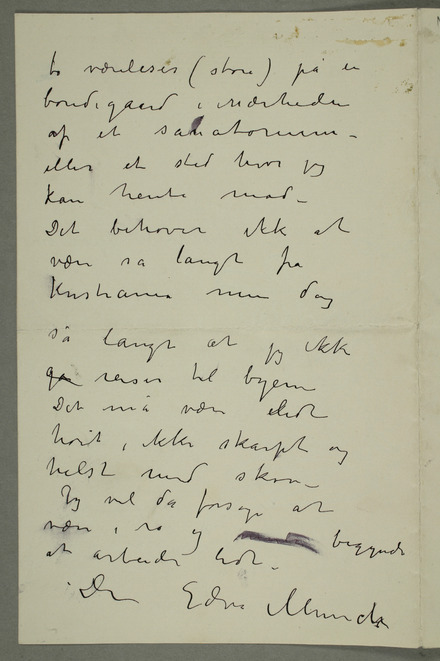 to værelser (store) på en
bondegaard i nærheden
af et sanatorium –
eller et sted hvor jeg
kan hente mad –
Det behøver ikke at
være så langt fra
Kristiania men dog
så langt at jeg ikke
reiser til byerne
Det må være lidt
høit, ikke skarpt og
helst med skov –
Jeg vil da forsøge at
være i ro og begynde
at arbeide lidt –
Din Edvard Munch